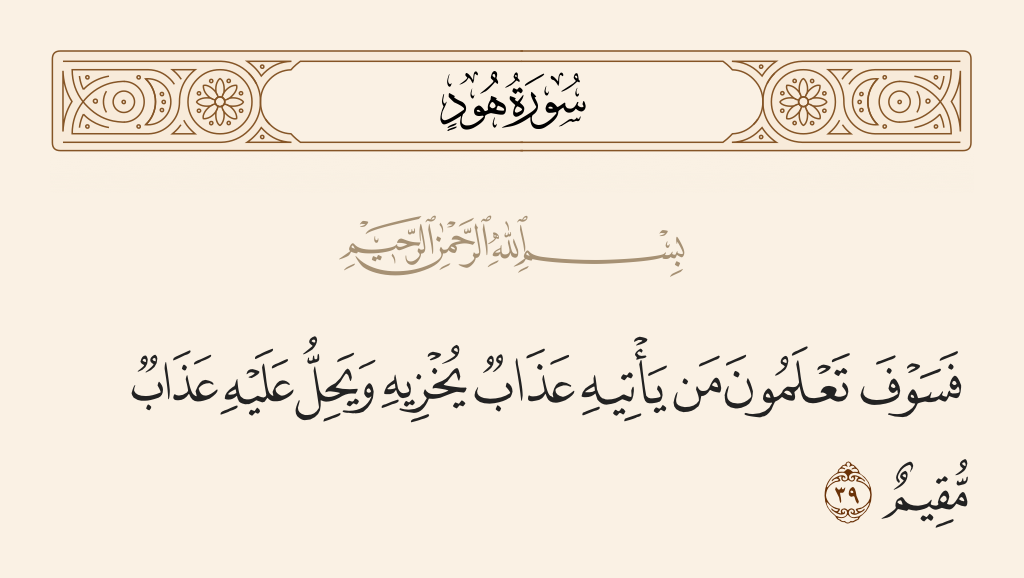 سُورَةُ هُودٍ
بِسْمِ ٱللَّهِ ٱلرَّحْمَٰنِ ٱلرَّحِيمِ
فَسَوْفَ تَعْلَمُونَ مَن يَأْتِيهِ عَذَابٌ يُخْزِيهِ وَيَحِلُّ عَلَيْهِ عَذَابٌ
مُّقِيمٌ ٣٩